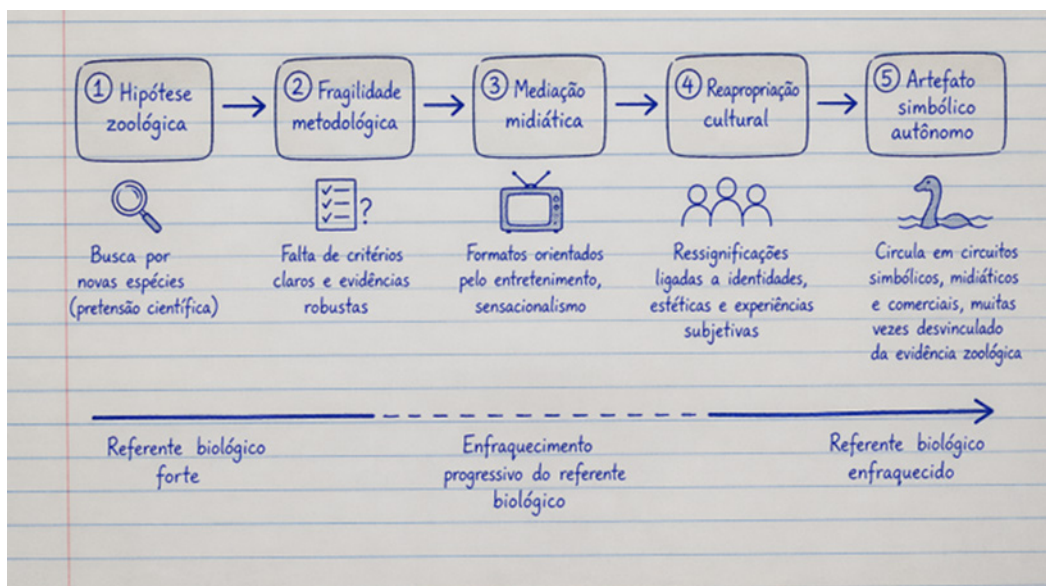 ① Hipótese
zoológica
② Fragilidade
metodológica
③ Mediação
midiática
④ Reapropriação
cultural
⑤ Artefato
simbólico
autônomo
Busca por
novas espécies
(pretensão científica)
Falta de critérios
claros e evidências
robustas
?
Formatos orientados
pelo entretenimento,
sensacionalismo
Ressignificações
ligadas a identidades,
estéticas e experiências
subjetivas
Circula em circuitos
simbólicos, midiáticos
e comerciais, muitas
vezes desvinculado
da evidência zoológica
Referente biológico
forte
Enfraquecimento
progressivo do referente
biológico
Referente biológico
enfraquecido